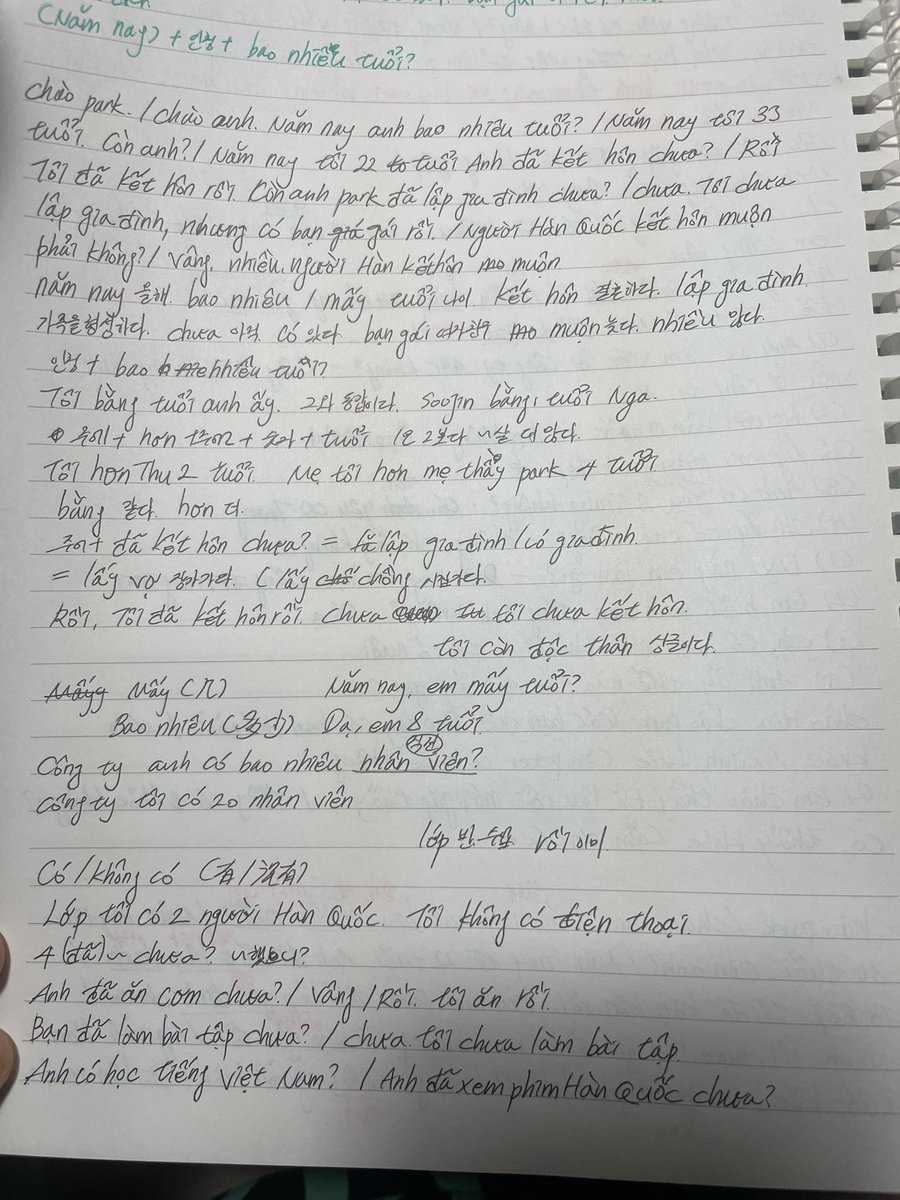 (Năm nay) + 인칭 + bao nhiêu tuổi?
chào park. / chào anh. Năm nay anh bao nhiêu tuổi? / Năm nay tôi 33
tuổi. Còn anh? / Năm nay tôi 22 tuổi. Anh đã kết hôn chưa? / Rồi
Tôi đã kết hôn rồi. Còn anh park đã lập gia đình chưa? / chưa. Tôi chưa
lập gia đình, nhưng có bạn gái rồi. / Người Hàn Quốc kết hôn muộn
phải không? / Vâng. nhiều người Hàn kết hôn muộn
năm nay 올해. bao nhiêu / mấy tuổi 나이 kết hôn 결혼하다. lập gia đình
가족을 형성하다. chưa 아직. có 있다. bạn gái 여자친구 muộn 늦다. nhiều 많다.
인칭 + bao nhiêu tuổi?
Tôi bằng tuổi anh ấy. 그와 동갑이다. Soojin bằng tuổi Nga.
주어1 + hơn + 주어2 + 숫자 + tuổi 1은 2보다 ~살 더 많다.
Tôi hơn Thu 2 tuổi. Mẹ tôi hơn mẹ thầy park 4 tuổi
bằng 같다. hơn 더.
주어 + đã kết hôn chưa? = lập gia đình / có gia đình
= lấy vợ 장가가다. ( lấy chồng 시집가다.
Rồi, Tôi đã kết hôn rồi. Chưa tôi chưa kết hôn.
tôi còn độc thân 싱글이다.
Mấy (几) Năm nay, em mấy tuổi?
Bao nhiêu (多少) Dạ, em 8 tuổi.
직원
Công ty anh có bao nhiêu nhân viên?
công ty tôi có 20 nhân viên
lớp 반. 수업 rồi 이미
Có / không có (有 / 没有)
Lớp tôi có 2 người Hàn Quốc. Tôi không có điện thoại.
4 (đã) ~ chưa? ~했니?
Anh đã ăn cơm chưa? / Vâng / Rồi. tôi ăn rồi.
Bạn đã làm bài tập chưa? / chưa. tôi chưa làm bài tập
Anh có học tiếng Việt Nam? / Anh đã xem phim Hàn Quốc chưa?